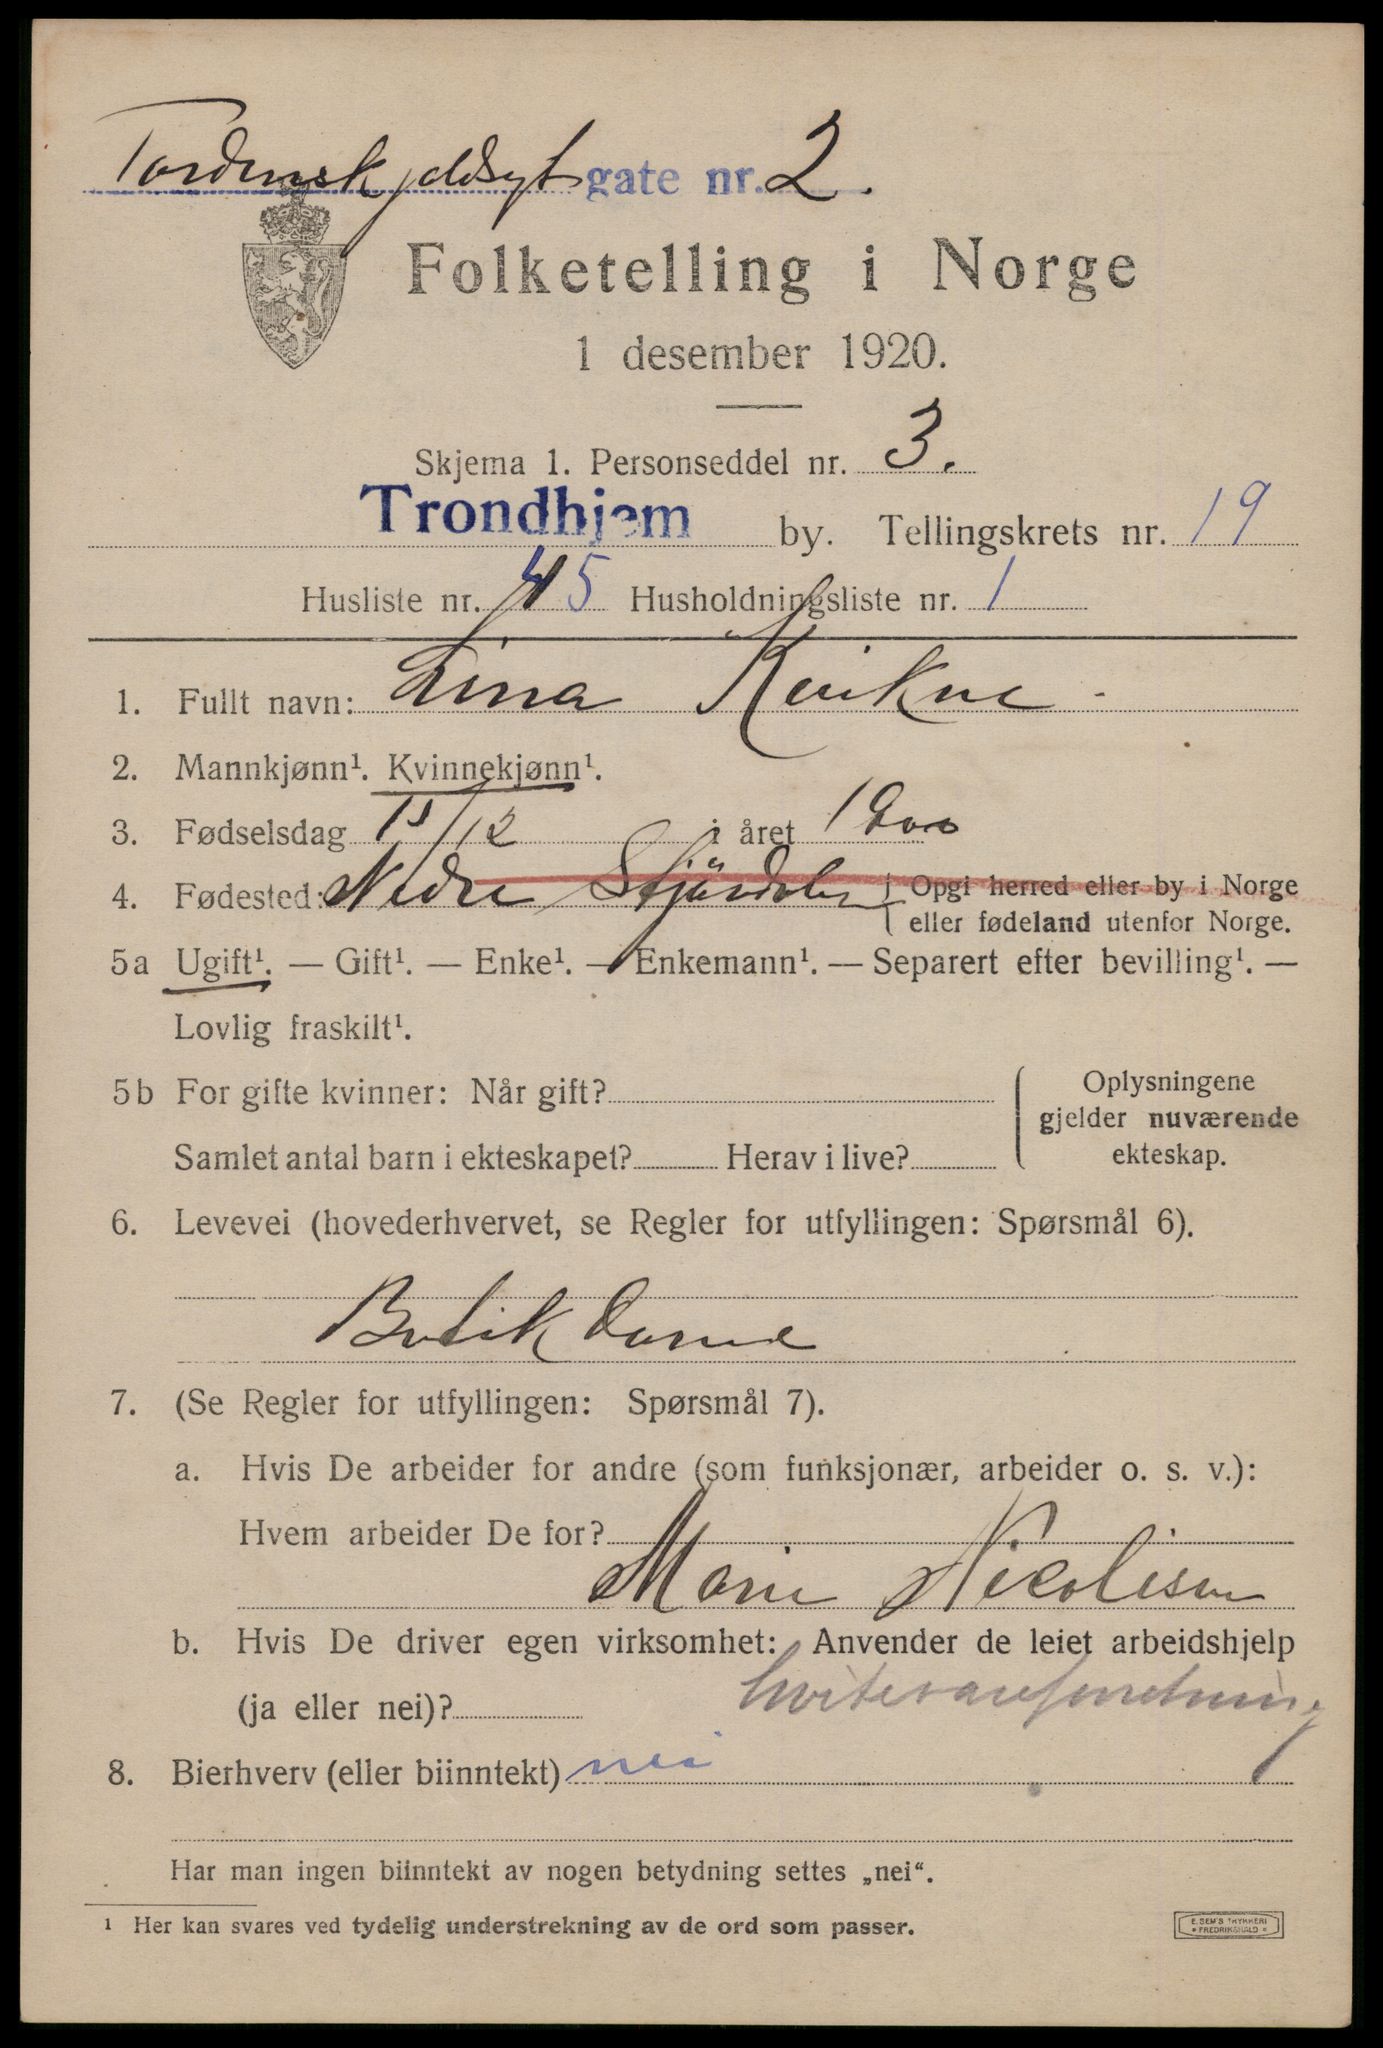 Tordenskjoldsgt gate nr. 2.
Folketelling i Norge
1 desember 1920.
Skjema 1. Personseddel nr. 3.
Trondhjem by. Tellingskrets nr. 19
Husliste nr. 45 Husholdningsliste nr. 1
1. Fullt navn: Lina Kvikne
2. Mannkjønn¹. Kvinnekjønn¹.
3. Fødselsdag 15/12 i året 1900
4. Fødested: Nedre Stjørdalen { Opgi herred eller by i Norge
eller fødeland utenfor Norge.
5a Ugift¹. — Gift¹. — Enke¹. — Enkemann¹. — Separert efter bevilling¹. —
Lovlig fraskilt¹.
5b For gifte kvinner: Når gift?
Samlet antal barn i ekteskapet? Herav i live?
Oplysningene
gjelder nuværende
ekteskap.
6. Levevei (hovederhvervet, se Regler for utfyllingen: Spørsmål 6).
Butik Dame
7. (Se Regler for utfyllingen: Spørsmål 7).
a. Hvis De arbeider for andre (som funksjonær, arbeider o. s. v.):
Hvem arbeider De for?
Marie Nicolisen
b. Hvis De driver egen virksomhet: Anvender de leiet arbeidshjelp
(ja eller nei)? hvitevareforretning
8. Bierhverv (eller biinntekt) nei
Har man ingen biinntekt av nogen betydning settes „nei“.
1 Her kan svares ved tydelig understrekning av de ord som passer.
E. SEM'S TRYKKERI
FREDRIKSHALD